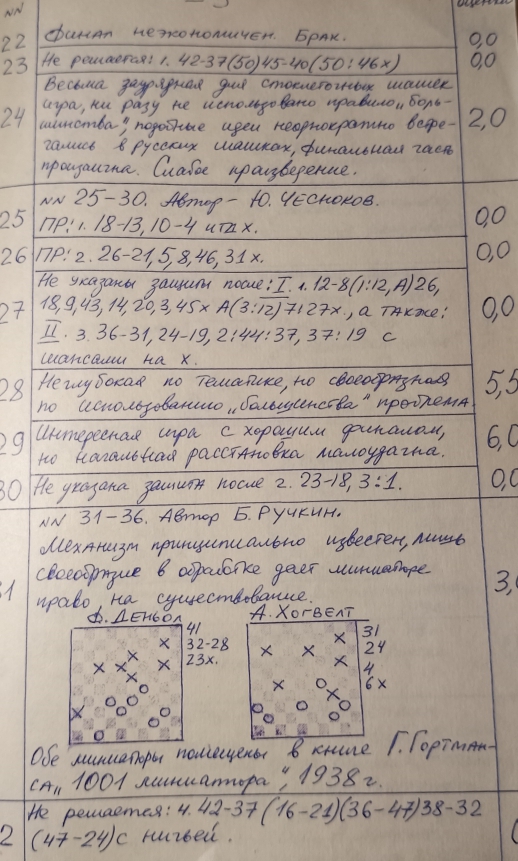 NN
оценки
22 Финал неэкономичен. Брак. 0,0
23 Не решается: 1. 42-37(50)45-40(50:46х) 0,0
Весьма заурядная для стоклеточных шашек
игра, ни разу не использовано правило „боль-
24 шинства", подобные идеи неоднократно встре- 2,0
гались в русских шашках, финальная часть
прозаична. Слабое произведение.
NN 25-30. Автор - Ю. Чесноков.
25 ПР: 1. 18-13, 10-4 итд х. 0,0
26 ПР: 2. 26-21, 5, 8, 46, 31 х. 0,0
Не указаны защиты после: I. 1. 12-8(1:12, А)26,
27 18, 9, 43, 14, 20, 3, 45х А(3:12)7:27х., а также: 0,0
II. 3. 36-31, 24-19, 2:44:37, 37:19 с
шансами на х.
28 Неглубокая по тематике, но своеобразная 5,5
по использованию „большинства" проблема.
29 Интересная игра с хорошим финалом, 6,0
но начальная расстановка малоудачна.
30 Не указана защита после 2. 23-18, 3:1. 0,0
NN 31-36. Автор Б. Ручкин.
Механизм принципиально известен, лишь
31 своеобразие в обработке дает миниатюре 3,
право на существование.
Ф. Деньол А. Хогвелт
41
32-28
23х.
31
24
4
6х
Обе миниатюры помещены в книге Г. Гортман-
са „1001 миниатюра", 1938 г.
32 Не решается: 4. 42-37 (16-21)(36-47)38-32
(47-24) с ничьей.